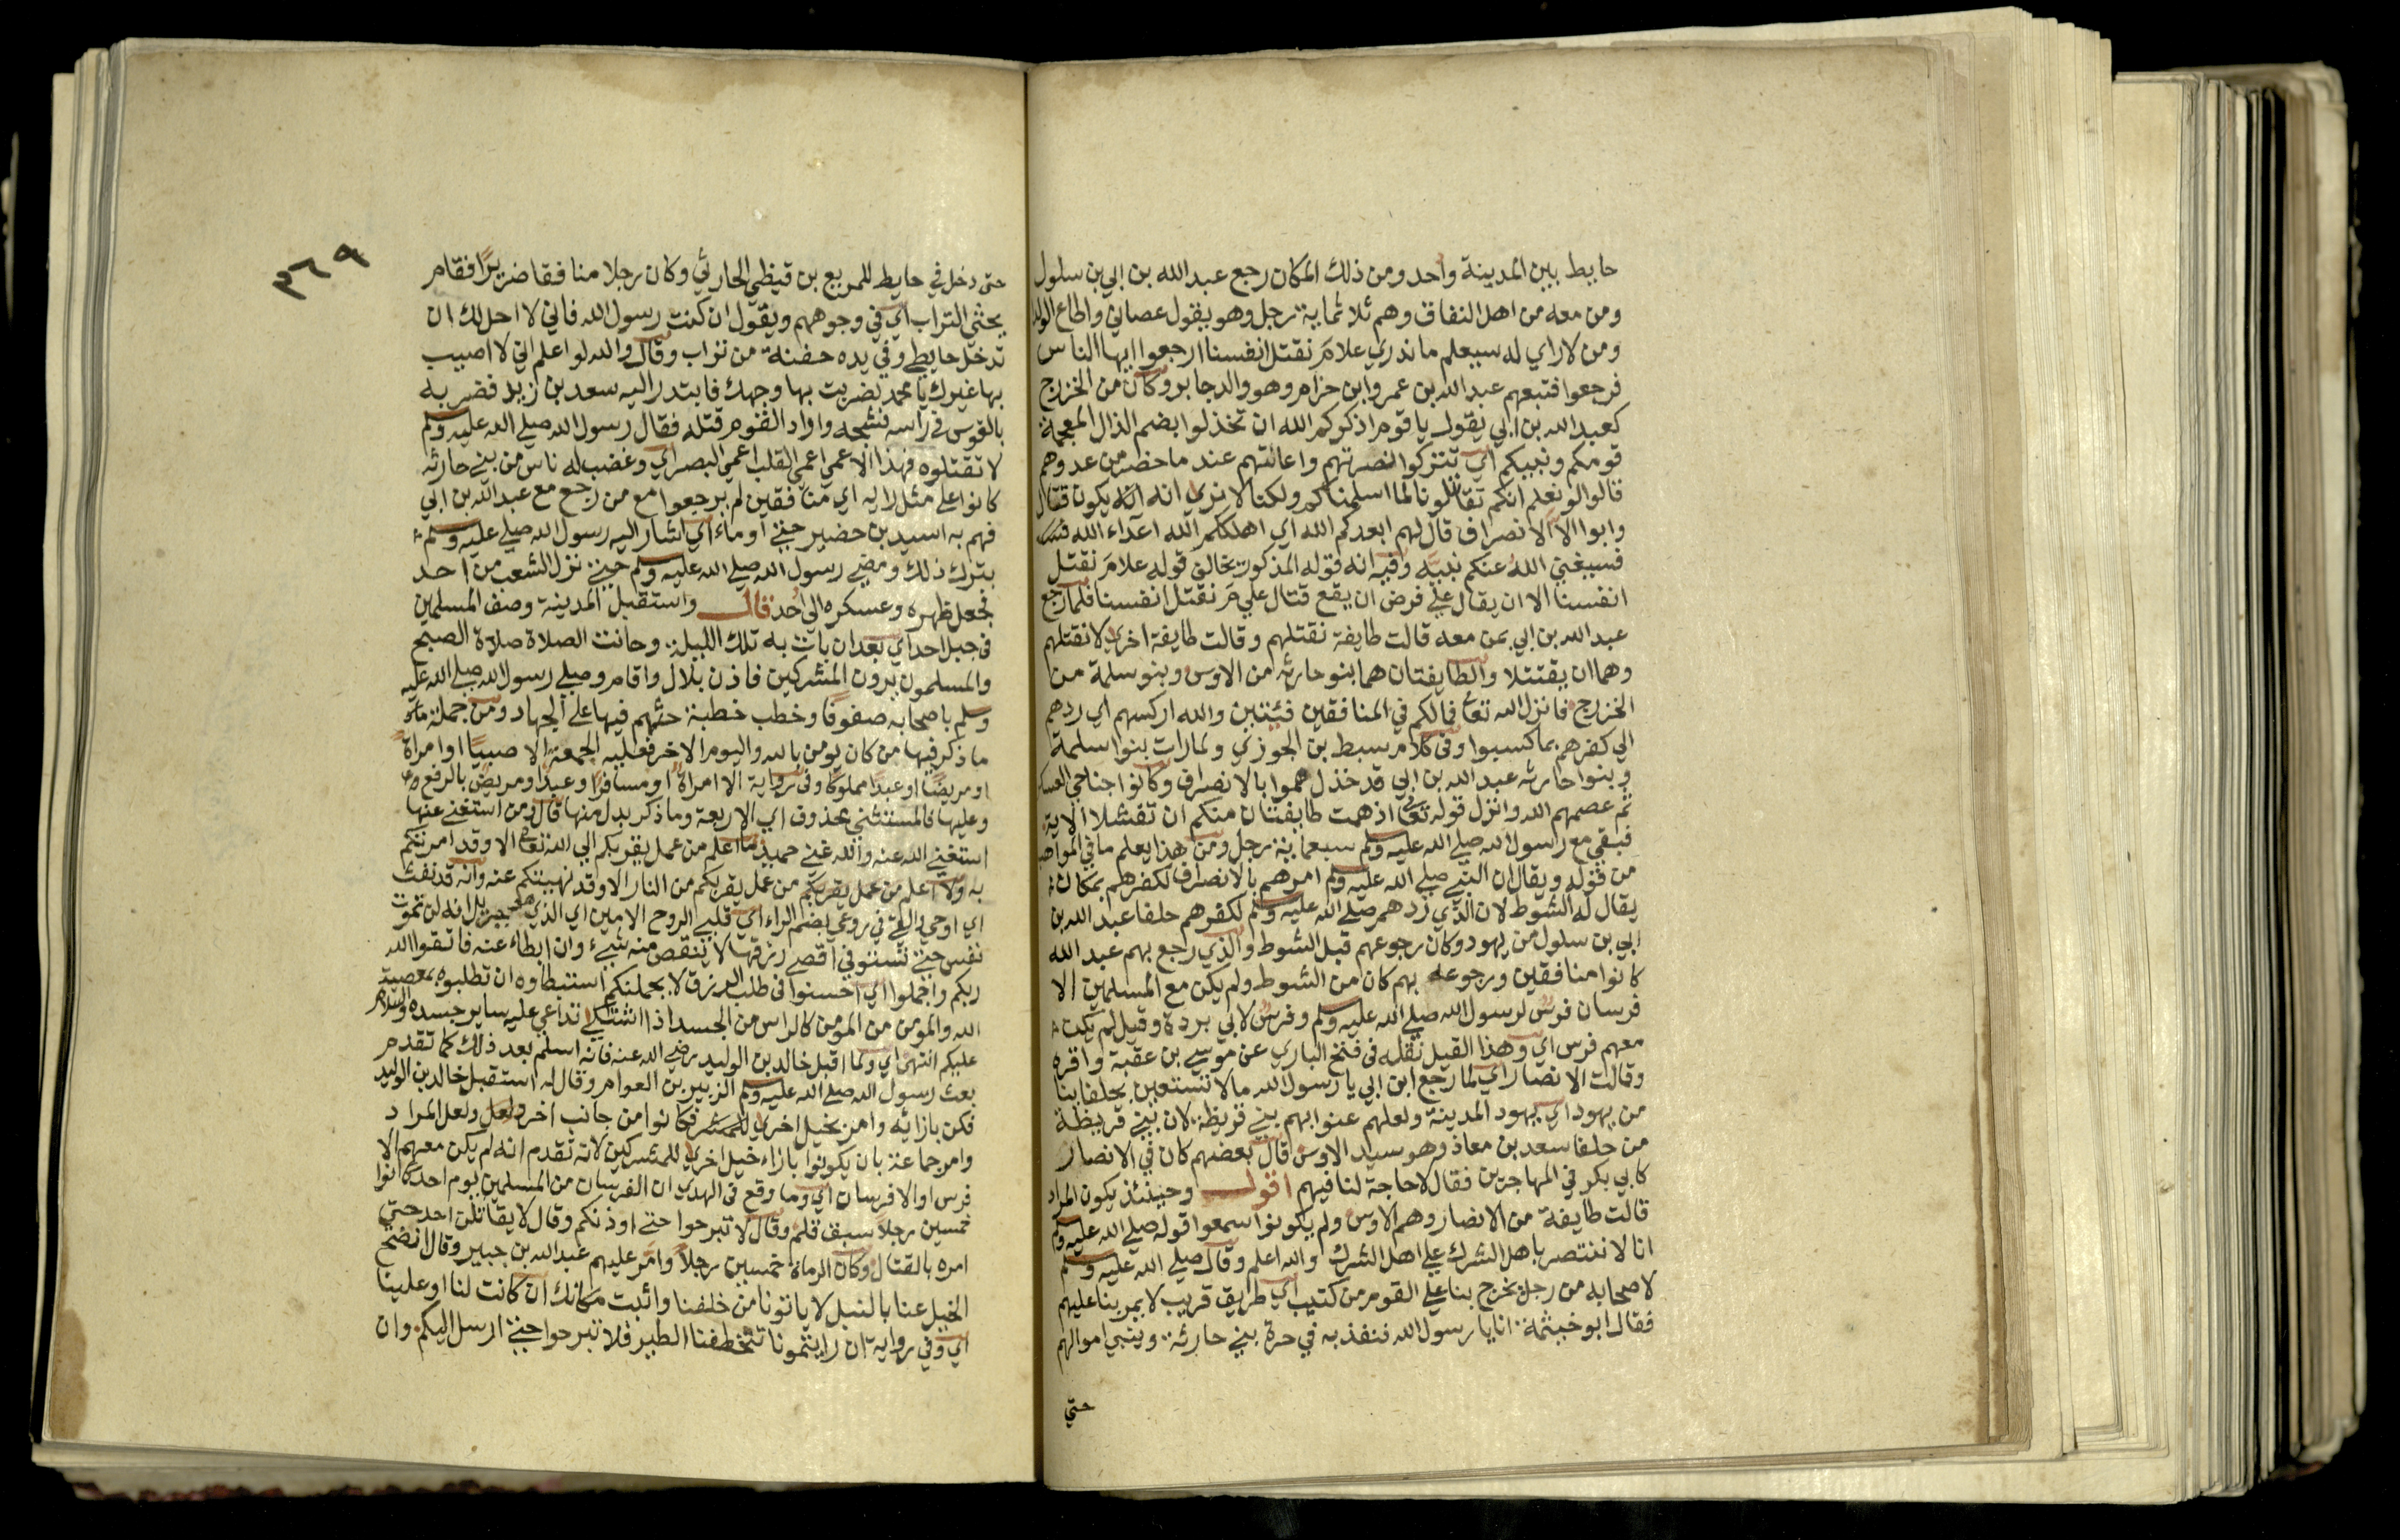 حايط بين المدينة واحد ومن ذلك المكان رجع عبد الله بن ابي بن سلول
ومن معه من اهل النفاق وهم ثلاثماية رجل وهو يقول عصاني واطاع الولد
ومن لا راي له سيعلم ما ندري علام نقتل انفسنا ارجعوا ايها الناس
فرجعوا فتبعهم عبد الله بن عمرو ابن حزام وهو والد جابر وكان من الخزرج
كعبد الله بن ابي يقول يا قوم اذكركم الله ان تخذلوا بضم الذال المعجمة
قومكم ونبيكم اي تتركوا نصرتهم واعانتهم عند ما حضر من عدوهم
قالوا لو نعلم انكم تقاتلون لما اسلمناكم ولكنا لا نري انه يكون قتال
وابوا الا الانصراف قال لهم ابعدكم الله اي اهلككم الله اعداء الله
فسيغني الله عنكم نبيه وفيه انه قوله المذكور يخالف قوله علام نقتل
انفسنا الا ان يقال علي فرض ان يقع قتال علي م نقتل انفسنا فلما رجع
عبد الله بن ابي بمن معه قالت طايفة نقتلهم وقالت طايفة اخري لا نقتلهم
وهما ان يقتتلا والطايفتان هما بنو حارثه من الاوس وبنو سلمة من
الخزرج فانزل الله تعالى فمالكم في المنافقين فئتين والله اركسهم اي ردهم
الي كفرهم بما كسبوا وفي كلام سبط بن الجوزي ولما رات بنوا سلمة
وبنوا حارثه عبد الله بن ابي قد خذل هموا بالانصراف وكانوا جناحي العسكر
ثم عصمهم الله وانزل قوله تعالى اذ همت طايفتان منكم ان تفشلا الاية
فبقي مع رسول الله صلي الله عليه وسلم سبعماية رجل ومن هذا يعلم ما في المواهب
من قوله ويقال ان النبي صلي الله عليه وسلم امرهم بالانصراف لكفرهم بمكان
يقال له الشوط لان الذي ردهم صلي الله عليه وسلم لكفرهم حلفا عبد الله بن
ابي بن سلول من يهود وكان رجوعهم قبل الشوط والذي رجع بهم عبد الله
كانوا منافقين ورجوعه بهم كان من الشوط ولم يكن مع المسلمين الا
فرسان فرس لرسول الله صلي الله عليه وسلم وفرس لابي بردة وقيل لم يكن
معهم فرس اي وهذا القيل نقله في فتح الباري عن موسي بن عقبة واقره
وقالت الانصار اي لما رجع ابن ابي يا رسول الله ما لا نستعين بحلفاينا
من يهود اي يهود المدينة ولعلهم عنوا بهم بني قريظة لان بني قريظة
من حلفا سعد بن معاذ وهو سيد الاوس قال بعضهم كان في الانصار
كابي بكر في المهاجرين فقال لا حاجة لنا فيهم اقول وحينئذ يكون المراد
قالت طايفة من الانصار وهم الاوس ولم يكونوا سمعوا قوله صلي الله عليه وسلم
انا لا ننتصر باهل الشرك علي اهل الشرك والله اعلم وقال صلي الله عليه وسلم
لاصحابه من رجل يخرج بنا علي القوم من كثيب اي طريق قريب لا يمر بنا عليهم
فقال ابو خيثمة انا يا رسول الله فنفذ به في حرة بني حارثة وبين اموالهم
حتي
٣٦٩
حتي دخل في حايط للمربع بن قيظي الحارثي وكان رجلا منافقا ضريرا فقام
يحثي التراب اي في وجوههم ويقول ان كنت رسول الله فاني لا احل لك ان
تدخل حايطي وفي يده حفنة من تراب وقال والله لو اعلم اني لا اصيب
بها غيرك يا محمد لضربت بها وجهك فابتدر اليه سعد بن زيد فضربه
بالقوس في راسه فشجه واراد القوم قتله فقال رسول الله صلي الله عليه وسلم
لا تقتلوه فهذا الاعمي اعمي القلب اعمي البصر اي وغضب له ناس من بني حارثه
كانوا علي مثل رايه اي منافقين لم يرجعوا مع من رجع مع عبد الله بن ابي
فهم به اسيد بن حضير حتي اوماء اي اشار اليه رسول الله صلي عليه وسلم
بترك ذلك ومضي رسول الله صلي الله عليه وسلم حتي نزل الشعب من احد
فجعل ظهره وعسكره الي احد قال واستقبل المدينة وصف المسلمين
في جبل احد اي بعد ان بات به تلك الليلة وحانت الصلاة صلاة الصبح
والمسلمون يرون المشركين فاذن بلال واقام وصلي رسول الله صلي الله عليه
وسلم باصحابه صفوفا وخطب خطبة حثهم فيها علي الجهاد ومن جملة
ما ذكر فيها من كان يومن بالله واليوم الاخر فعليه الجمعة الا صبيا او امراة
او مريضا او عبدا مملوكا وفي رواية الا امراة او مسافرا وعبدا ومريض بالرفع
وعليها فالمستثني محذوف اي الاربعة وما ذكر بدل منها قال ومن استغني عنها
استغني الله عنه والله غني حميد ما اعلم من عمل يقربكم الي الله تعالى الا وقد امرتكم
به ولا اعلم من عمل يقربكم من عمل يقربكم من النار الا وقد نهيتكم عنه وانه قد نفث
اي اوحي والقي في روعي بضم الراء اي قلبي الروح الامين اي الذي هو جبريل انه لن تموت
نفس حتي تستوفي اقصي رزقها لا ينقص منه شيء وان ابطاء عنه فاتقوا الله
ربكم واجملوا اي احسنوا في طلب الرزق لا يحملنكم استبطاوه ان تطلبوه بمعصية
الله والمومن من المومن كالراس من الجسد اذا اشتكي تداعي عليه ساير جسده والسلام
عليكم انتهي اي ولما اقبل خالد بن الوليد رضي الله عنه فانه اسلم بعد ذلك كما تقدم
بعث رسول الله صلي الله عليه وسلم الزبير بن العوام وقال له استقبل خالد بن الوليد
فكن بازائه وامر بخيل اخري فكانوا من جانب اخر ولعل المراد
وامر جماعة بان يكونوا بازاء خيل اخري للمشركين لانه تقدم انه لم يكن معهم الا
فرس او الا فرسان اي وما وقع في الهدي ان الفرسان من المسلمين يوم احد كانوا
خمسين رجلا سبق قلم وقال لا تبرحوا حتي اوذنكم وقال لا يقاتلن احد حتي
امره بالقتال وكان الرماة خمسين رجلا وامر عليهم عبد الله بن جبير وقال انضح
الخيل عنا بالنبل لا ياتونا من خلفنا واثبت مكانك ان كانت لنا او علينا
اي وفي رواية ان رايتمونا تتخطفنا الطير فلا تبرحوا حتي ارسل اليكم وان